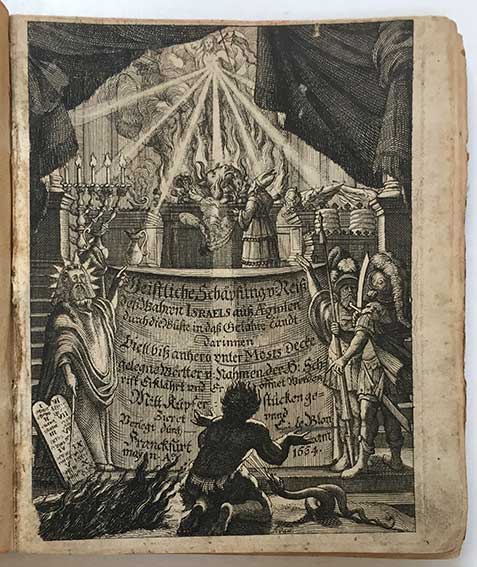 Geistliche Schäpfung v Reiß
deß Wahren ISRAELS auß Ægipten
durch die Wüste in daß Gelobte Landt
Darinnen
Viell biß anhero vnter MOSIS Decke
gelegne Wertter v Nahmen der H. Sch
rift Erklährt vnd Er öffnet Werden
Mitt Kupfer stücken ge
zieret vnd
Verlegt durch le Blon
Franckfurt
am 1664.